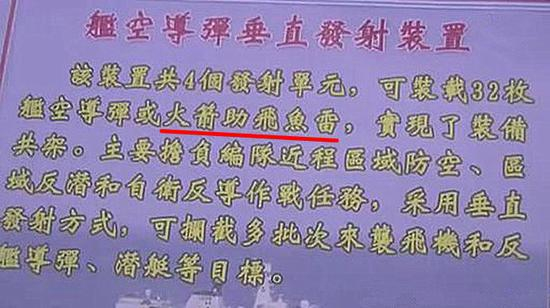 艦空導彈垂直發射裝置
該裝置共4個發射單元，可裝載32枚
艦空導彈或火箭助飛魚雷，實現了裝備
共架。主要擔負編隊近程區域防空、區
域反潛和自衛反導作戰任務，采用垂直
發射方式，可攔截多批次來襲飛機和反
艦導彈、潛艇等目標。